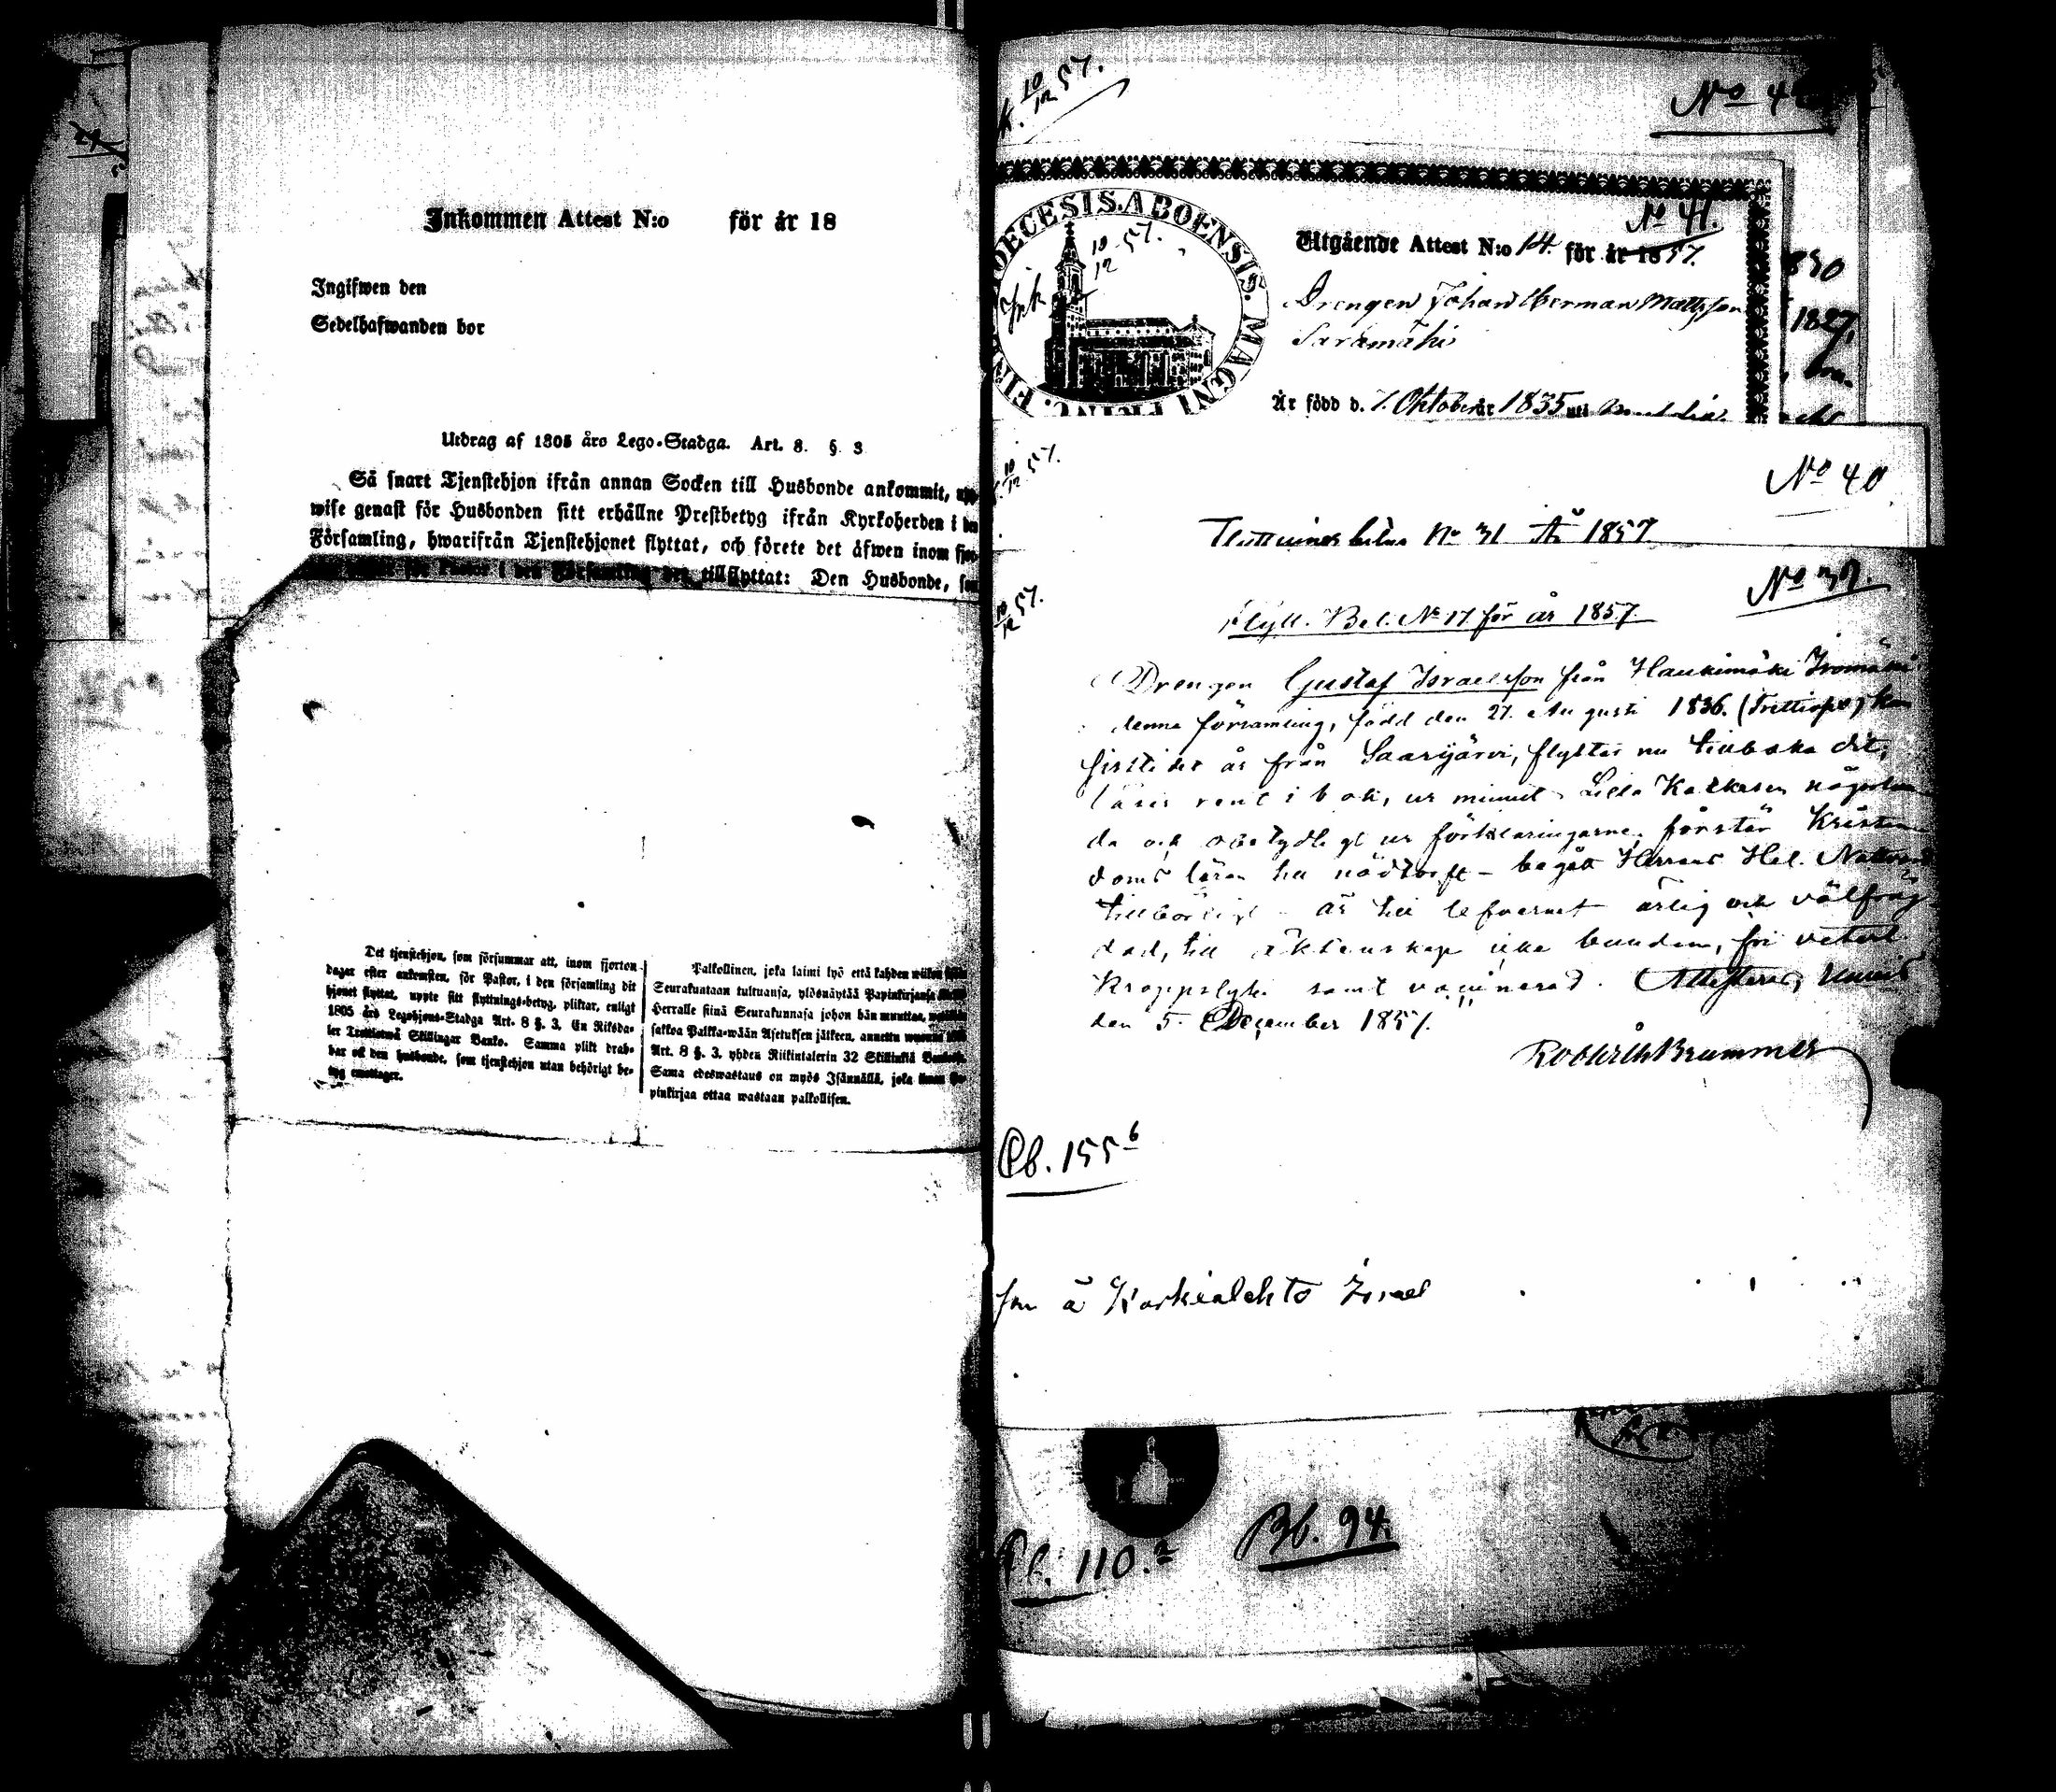 Inkommen Attest N:o för år 18
Ingifwen den
Sedelhafwanden bor
Utdrag af 1805 års Lego-Stadga. Art. 8. §. 3
Så snart Tjenstehjon ifrån annan Socken till Husbonde ankommit,
wise genast för Husbonden sitt erhållne Prestbetyg ifrån Kyrkoherden i
Församling, hwarifrån Tjenstehjonet flyttat, och förete det äfwen inom
tillflyttat: Den Husbonde,
Det tjenstehjon, som försummar att, inom fjorton
dagar efter ankomsten, för Pastor, i den församling dit
hjonet flyttat, uppte sitt flyttnings-betyg, pliktar, enligt
1805 års Legohjons-Stadga Art. 8 §. 3. En Riksda-
ler Trettiotwå Skillingar Banko. Samma plikt drab-
bar ock den husbonde, som tjenstehjon utan behörigt be-
tyg emottager.
Palkollinen, joka laimi lyö että kahden wiikon
Seurakuntaan tultuansa, ylösnäytää Papinkirjansa
Herralle siinä Seurakunnasa johon hän muuttaa,
sakkoa Palkka-wään Asetuksen jälkeen, annettu wuonna
Art. 8 §. 3. yhden Riikintalerin 32 Skillinkiä
Sama edeswastaus on myös Isännällä, joka ilman
pinkirjaa ottaa wastaan palkollisen.
10/12 57.
No 4
DECESIS. ABOENSIS. MAGNI PRINC. FIN
Ink 10/12 57.
No 41.
Utgående Attest N:o 14. för år 1857.
Drengen Johan Herman Mattsson
Saramäki
Är född d. 7. Oktober år 1835 uti
1827,
10/12 57.
No 40
No 31 År 1857
10/12 57.
No 39.
Flytt. Bet. No 17 för år 1857.
Drengen Gustaf Israelsson från Haukimäki
denna församling, född den 27. Augusti 1836. (Trettiosex) kom
år från Saarijärvi, flyttar nu tillbaka dit,
läser rent i bok, ur minnet Lilla Katkesen någorlun
da och obetydligt ur förklaringarne, förstår Kristen
doms läran till nödtorft - begått Herrans Hel. Nattvard
tillbörligt - är till lefvernet ärlig och välfräg
dad, till äktenskap icke bunden, fri
Kroppslyte samt vaccinerad. Attesterar,
den 5. December 1857.
Roderik Brummer
Cb. 155 6
son å Karkialehto Israel
110.
Bb. 94.